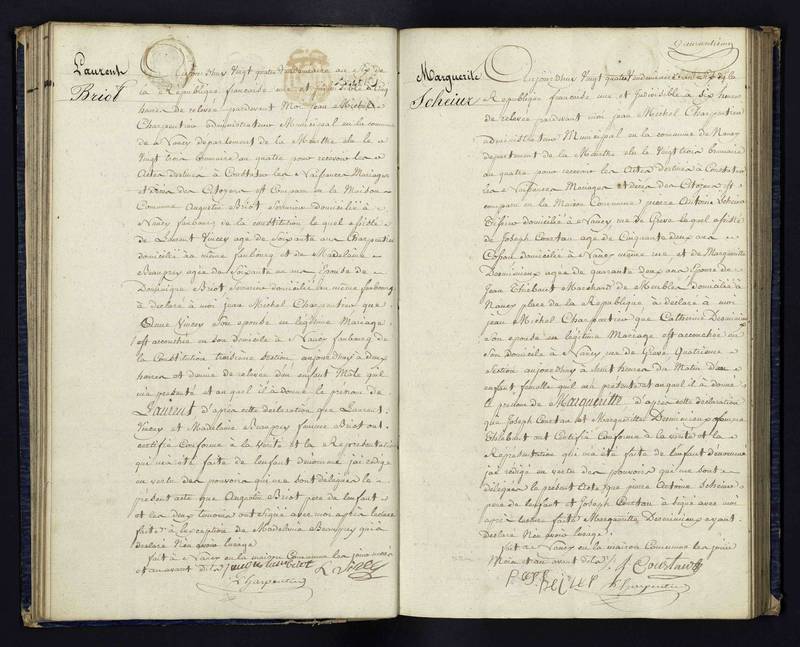 Laurent
Briot
Aujourdhuy Vingt quatre Vendemiaire an
la République francaise une et indivisible a cinq
heures de relevée pardevant Moi Jean Michel
Charpentier administrateur Municipal en la commune
de à Nancy departement de la Meurthe elu le
Vingt trois brumaire an quatre pour recevoir les
Actes destinés à Constater les Naissances Mariages
et décès des Citoyens est Comparu en la Maison
Commune Augustin Briot Serrurier domicilié à
Nancy faubourg de la constitution, le quel assisté
de Laurent Vincey agé de Soixante ans Charpentier
domicilié au même faubourg et de Madelaine
Beauprey agée de Soixante un ans Epouse de
Dominique Briot Serrurier domicilié au même faubourg
à déclaré à moi jean Michel Charpentier que
Vincey Son epouse en legitime Mariage
est accouchée en son domicile à Nancy faubourg de
la Constitution troisieme Section aujourdhuy à deux
heures et demie de relevée d'un Enfant Mâle qu'il
m'a presenté et au quel il à donné le prénom de
Laurent d'après cette déclaration que Laurent
Vincey et Madelaine Beauprey femme Briot ont
certifié Conforme à la Vérité et la Représentation
qui m'a été faite de l'enfant dénommé j'ai redigé
en vertu des pouvoirs qui me sont delegués le
présent acte que Augustin Briot pere de l'enfant
et les deux temoins ont signé avec moi après lecture
faite à l'exception de Madelaine Beauprey qui à
declaré n'en avoir l'usage.
fait à Nancy en la maison Commune les jour mois
et an avant dits
augustin briot L Vincey
Charpentier
Marguerite
Scheiur
Aujourdhuy Vingt quatre Vendemiaire an de la
République francaise une et Indivisible à Six heures
de relevée pardevant moi jean Michel Charpentier
administrateur Municipal en la commune de Nancy
departement de la Meurthe elu le Vingt trois brumaire
an quatre pour recevoir les Actes destinés à Constater
les Naissances Mariages et décès des Citoyens est
comparu en la Maison Commune pierre Antoine
domicilié à Nancy, rue de Greve le quel assisté
de Joseph Courtau agé de Cinquante deux ans
domicilié à Nancy même rue et de Marguerite
agée de quarante deux ans Epouse de
Jean Thiébaut Marchand de Meubles domicilié à
Nancy place de la Republique à déclaré à moi
jean Michel Charpentier que Catherine
son epouse en legitime Mariage est accouchée en
Son domicile à Nancy rue de Greve Quatrieme
Section aujourdhuy à Sept heures du Matin d'un
enfant femelle qu'il m'a présenté et auquel il à donné
le prenom de Margueritte d'après cette declaration
que Joseph Courtau et Margueritte femme
Thiébaut ont Certifié Conforme à la vérité et la
Représentation qui m'a été faite de l'enfant denommé
j'ai redigé en vertu des pouvoirs qui me sont
délégués le présent Acte que pierre Antoine
pere de l'enfant et Joseph Courtau à signé avec moi
après lecture faite Margueritte ayant
declaré n'en avoir l'usage.
fait à Nancy en la maison Commune les jour
Mois et an avant dits
J Courtau
Charpentier